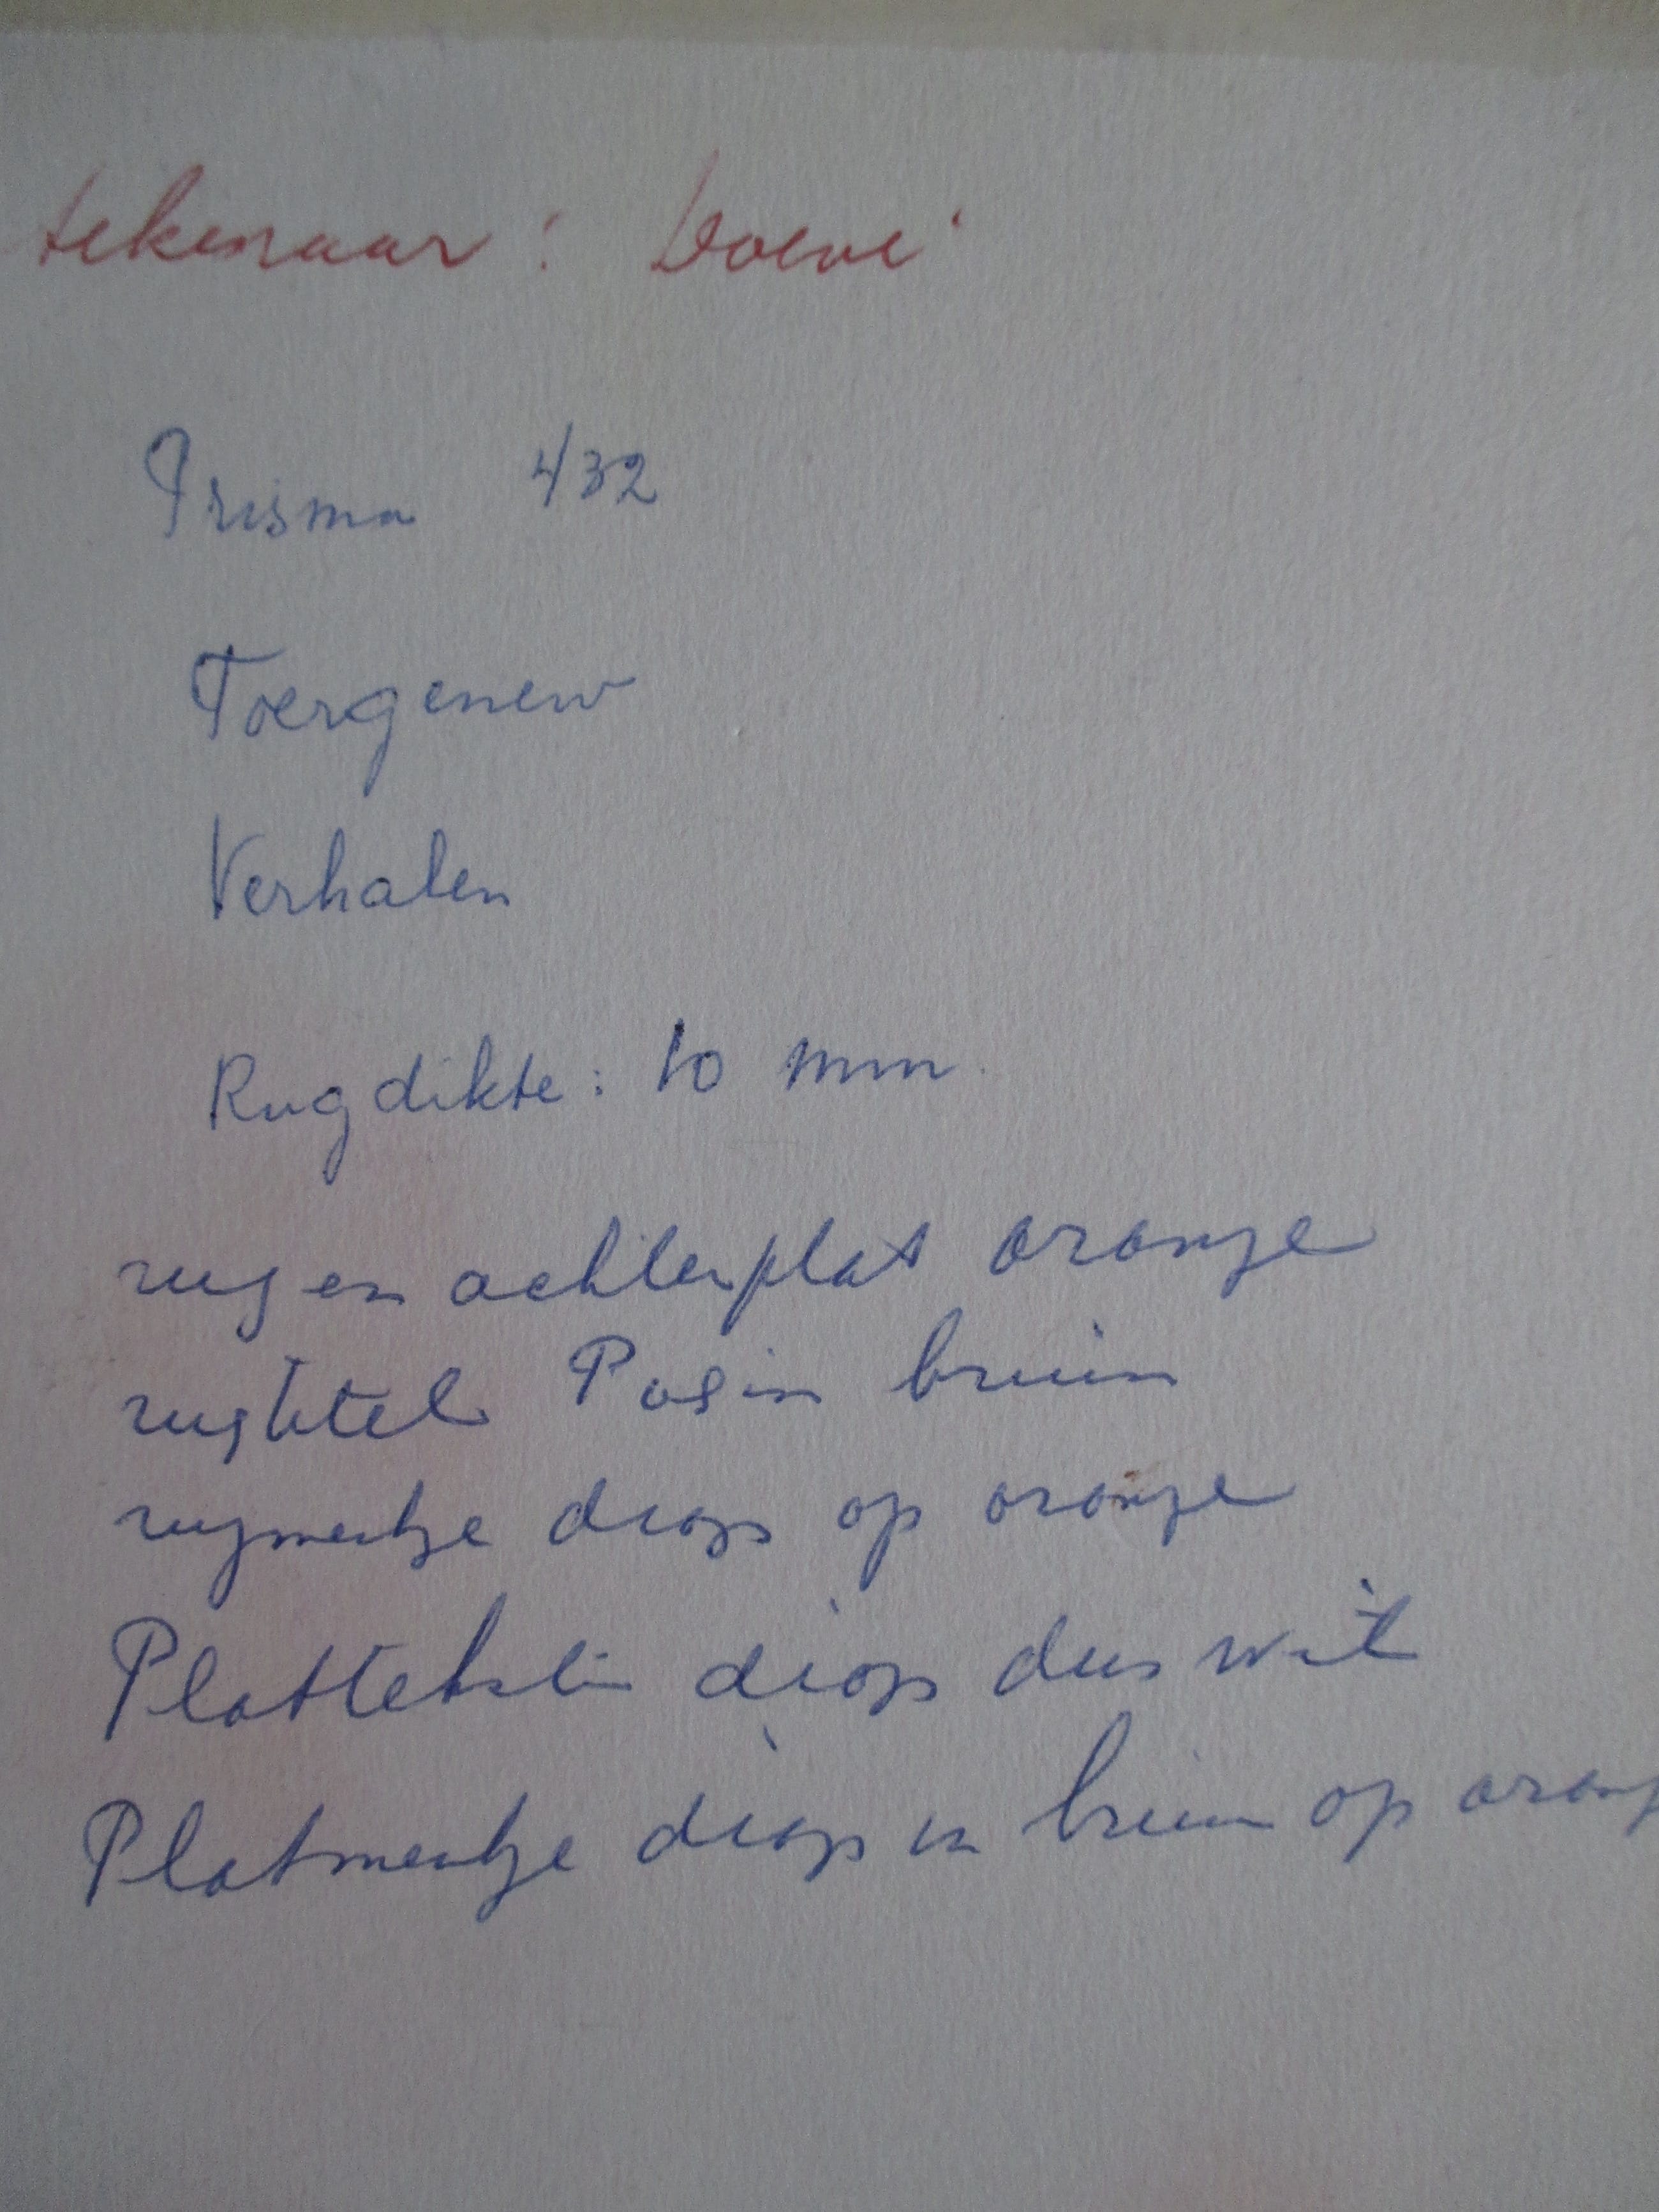 tekenaar:
Prisma 432
Toergenew
Verhalen
Rugdikte: 10 mm
rug en achterplat oranje
rugtitel Posin bruin
rugmerkje diap op oranje
Plattekst in diap dus wit
Platmerkje diap in bruin op oranj